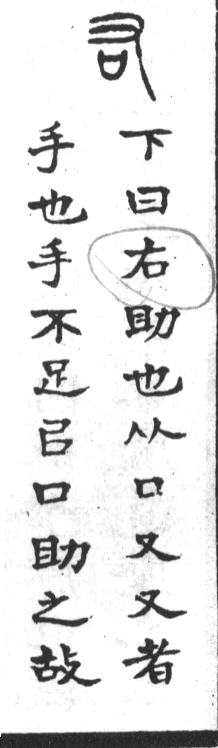 右
下曰右助也从口又又者
手也手不足㠯口助之故